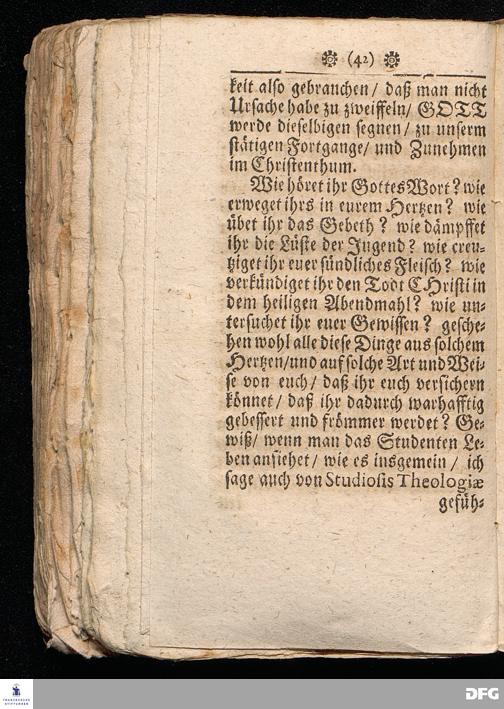 (42)
keit also gebrauchen / daß man nicht
Ursache habe zu zweiffeln / GOTT
werde dieselbigen segnen / zu unserm
stätigen Fortgange / und Zunehmen
im Christenthum.
Wie höret ihr Gottes Wort? wie
erweget ihrs in eurem Hertzen? wie
übet ihr das Gebeth? wie dämpffet
ihr die Lüste der Jugend? wie creu-
tziget ihr euer sündliches Fleisch? wie
verkündiget ihr den Todt CHristi in
dem heiligen Abendmahl? wie un-
tersuchet ihr euer Gewissen? gesche-
hen wohl alle diese Dinge aus solchem
Hertzen / und auf solche Art und Wei-
se von euch / daß ihr euch versichern
könnet / daß ihr dadurch warhafftig
gebessert und frömmer werdet? Ge-
wiß / wenn man das Studenten Le-
ben ansiehet / wie es insgemein / ich
sage auch von Studiosis Theologiæ
gefüh-
FRANCKESCHE
STIFTUNGEN
DFG